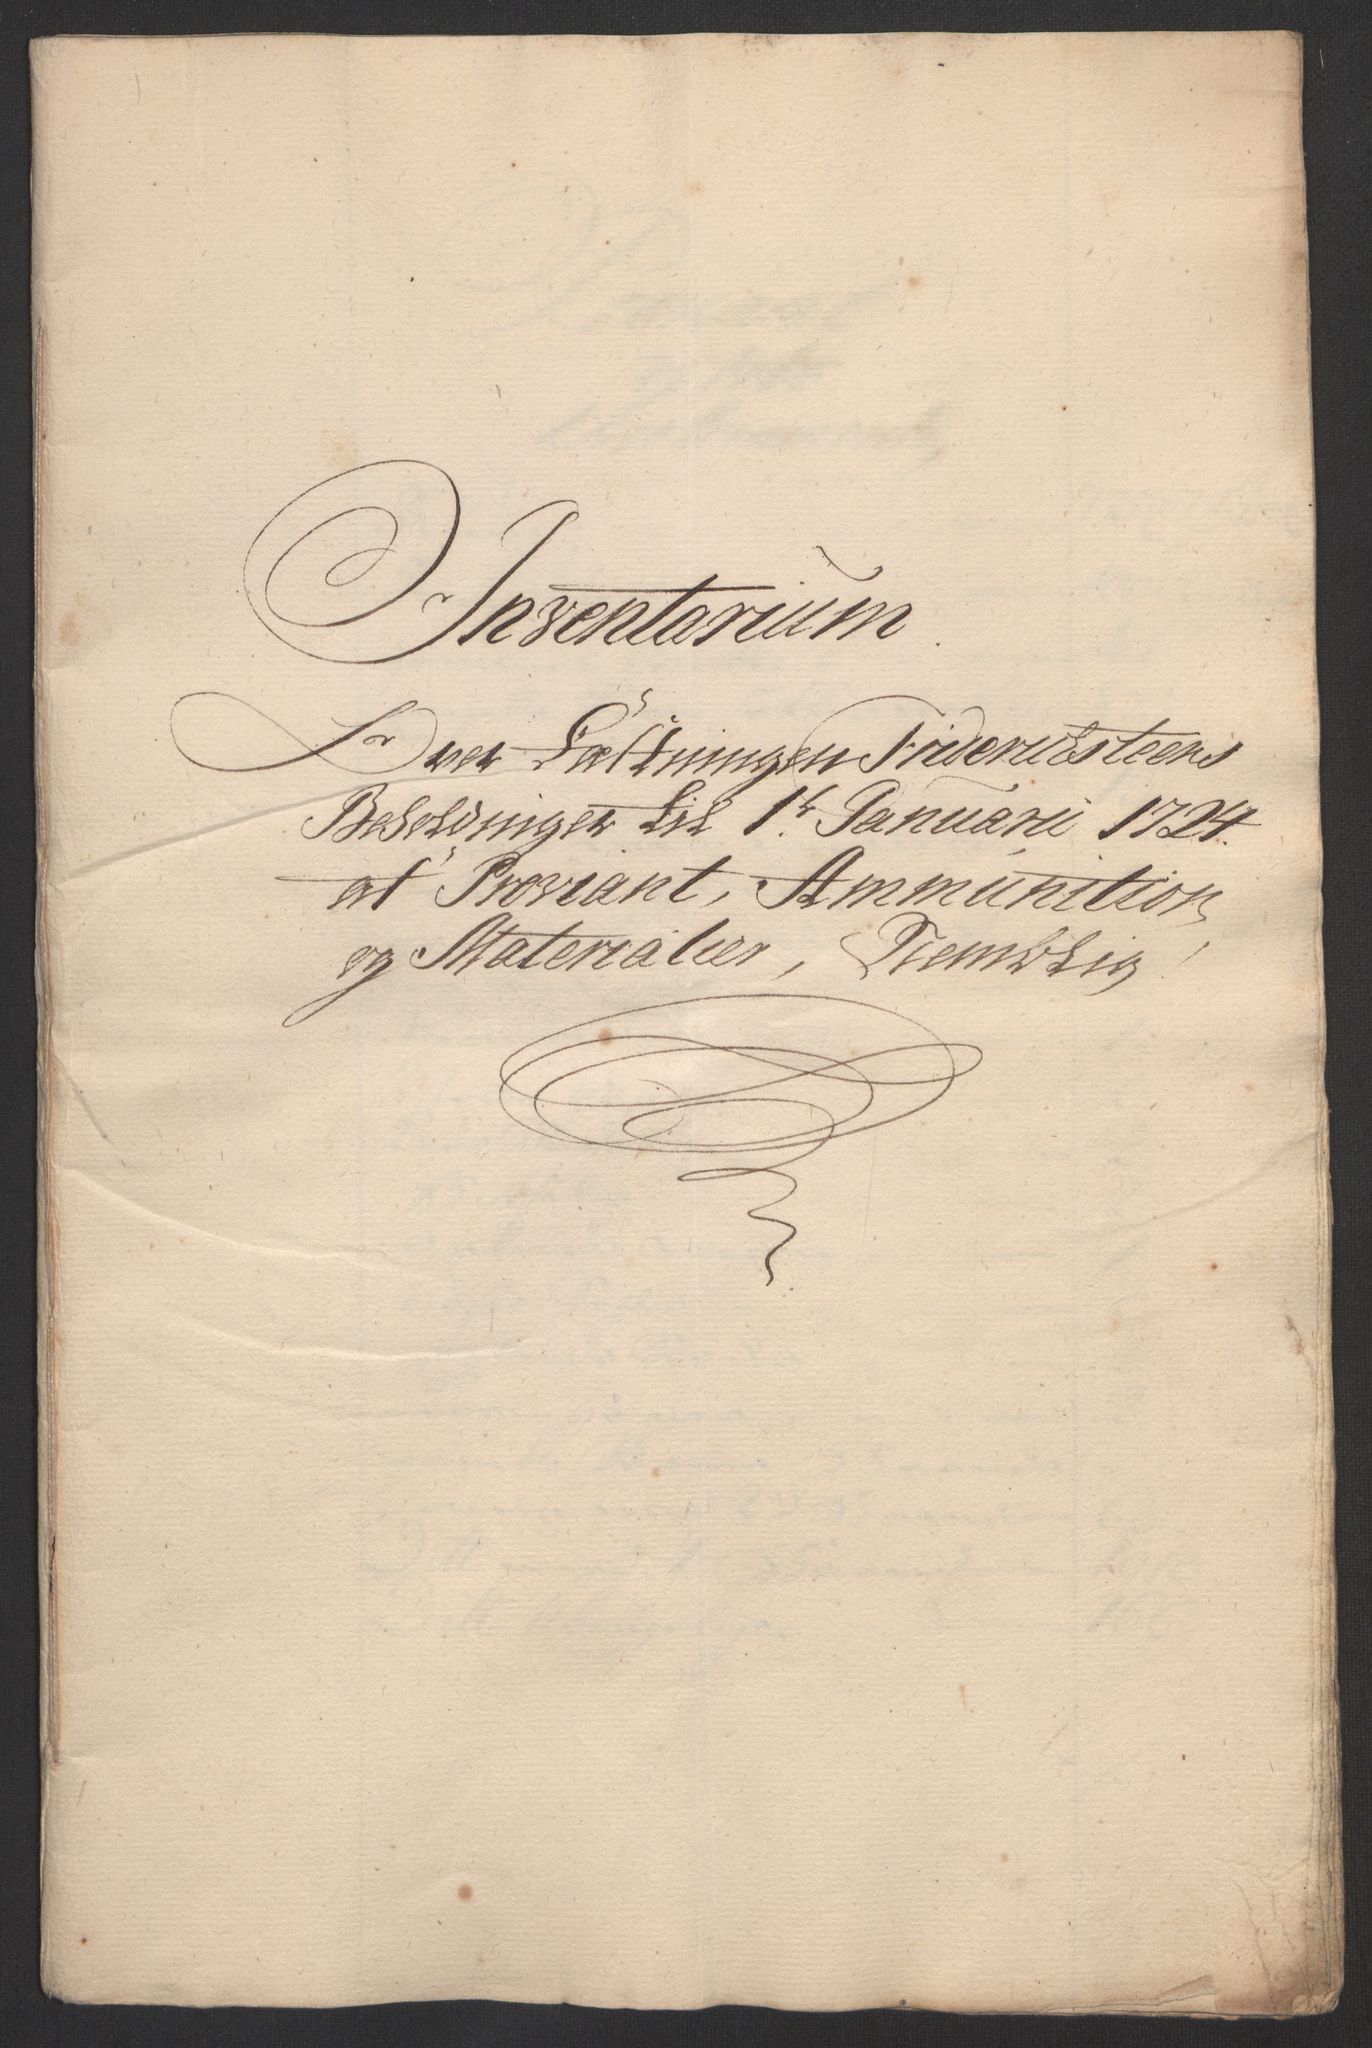 Inventarium
Over Fæstningen Fridericksteens
Beholdninger til 1t Januarii 1724.
af Proviant, Ammunition,
og Materialier, NembLig!